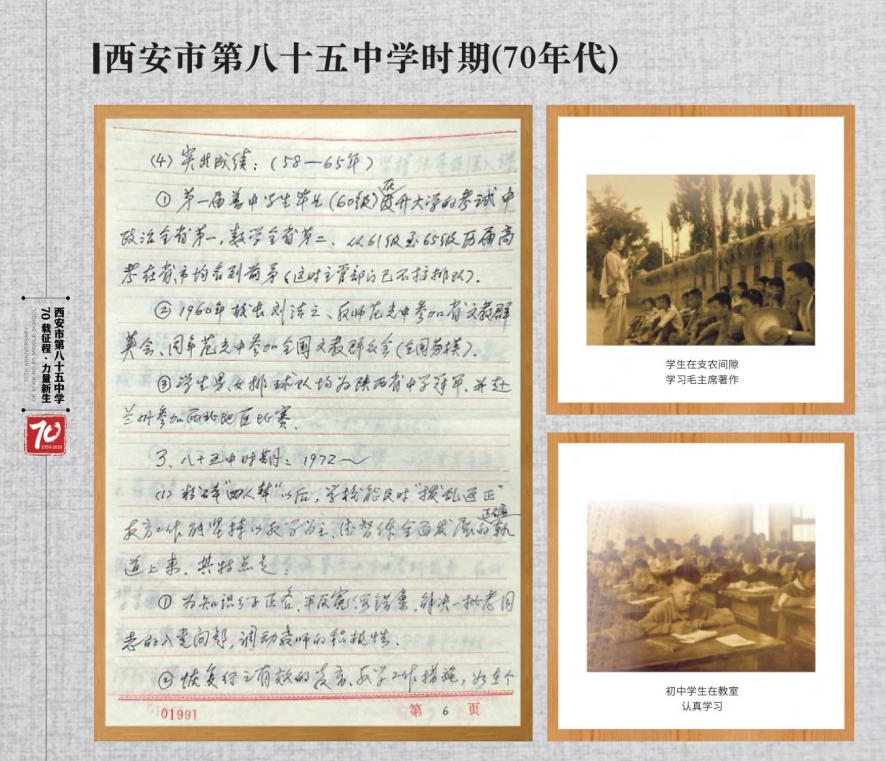 西安市第八十五中学时期(70年代)
(4) 突出成绩：(58—65年)
① 第一届高中学生毕业(60级)在 开大学的考试中
政治全省第一，数学全省第二、从61级至65级历届高
考在省市均名列前茅(这时主管部门已不搞排队)。
②1960年校长刘法之、教师范光中参加省文教群
英会、同年范光中参加全国文教群英会(全国劳模)。
③学生男女排球队均为陕西省中学冠军，并赴
兰州参加西北地区比赛。
3、八十五中时期：1972～
(1) 粉碎"四人帮"以后，学校能及时"拨乱返正"
教育工作 坚持以教学为主、德智体全面发展的轨
道上来。其特点是：
① 为知识分子正名、平反冤、假错案，解决一批老同
志的入党问题，调动教师的积极性。
② 恢复行之有效的教育、教学工作措施，如在个
01991
第 6 页
学生在支农间隙
学习毛主席著作
初中学生在教室
认真学习
西安市第八十五中学
70 载征程·力量新生
70
1950-2020